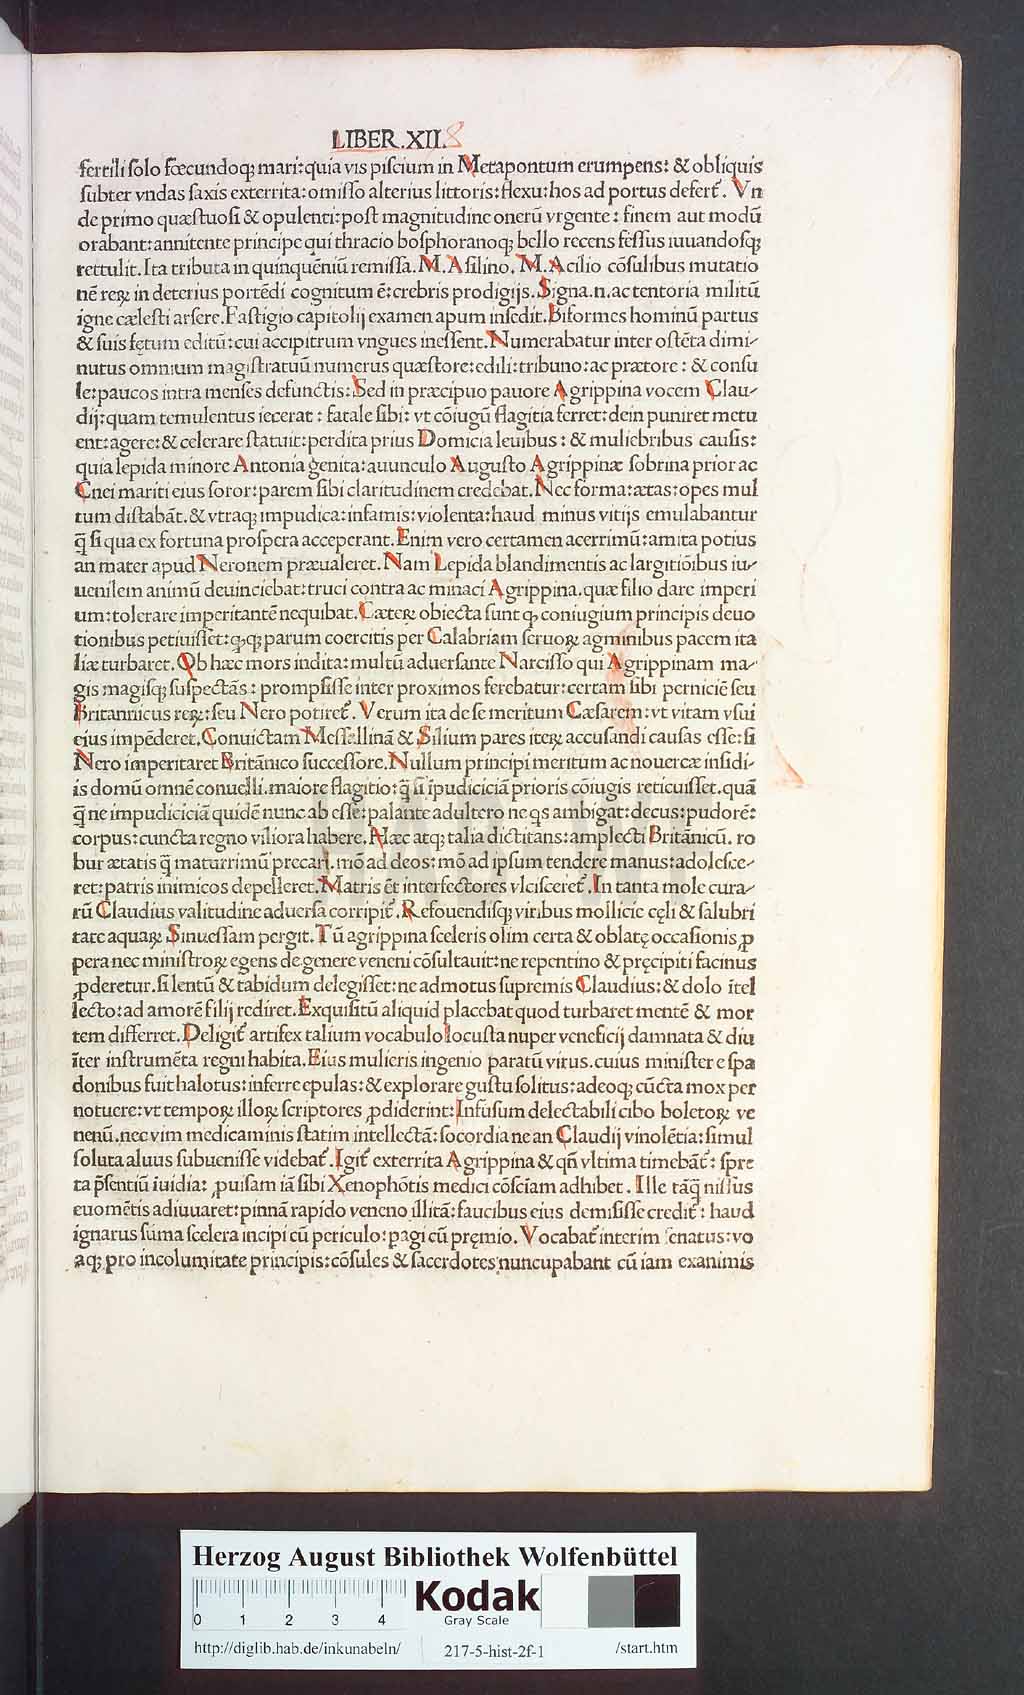 LIBER.XII.8
fertili solo fœcundoq; mari: quia vis piscium in Metapontum erumpens: & obliquis
subter vndas saxis exterrita: omisso alterius littoris: flexu: hos ad portus defert᷑. Vn
de primo quæstuosi & opulenti: post magnitudine onerū vrgente: finem aut modū
orabant: annitente principe qui thracio bosphoranoq; bello recens fessus iuuandosq;
rettulit. Ita tributa in quinquēniū remissa. M. Asilino. M. Acilio cōsulibus mutatio
nē reꝝ in deterius portēdi cognitum ē: crebris prodigijs. Signa.n.ac tentoria militū
igne cælesti arsere. Fastigio capitolij examen apum insedit. Biformes hominū partus
& suis fętum editū: cui accipitrum vngues inessent. Numerabatur inter ostēta dimi-
nutus omnium magistratuū numerus quæstore: edili: tribuno: ac prætore: & consu
le: paucos intra menses defunctis: Sed in præcipuo pauore Agrippina vocem Clau-
dij: quam temulentus iecerat: fatale sibi: vt cōiugū flagitia ferret: dein puniret metu
ent: agere: & celerare statuit: perdita prius Domicia leuibus: & muliebribus causis:
quia lepida minore Antonia genita: auunculo Augusto Agrippinæ sobrina prior ac
Cnei mariti eius soror: parem sibi claritudinem credebat. Nec forma: ætas: opes mul
tum distabāt. & vtraq; impudica: infamis: violenta: haud minus vitijs emulabantur
q̄ si qua ex fortuna prospera acceperant. Enim vero certamen acerrimū: amita potius
an mater apud Neronem præualeret. Nam Lepida blandimentis ac largitiōibus iu-
uenilem animū deuinciebat: truci contra ac minaci Agrippina. quæ filio dare imperi
um: tolerare imperitantē nequibat. Cæteꝝ obiecta sunt q; coniugium principis deuo
tionibus petiuisset: q;q; parum coercitis per Calabriam seruoꝝ agminibus pacem ita
liæ turbaret. Ob hæc mors indita: multū aduersante Narcisso qui Agrippinam ma-
gis magisq; suspectās: prompsisse inter proximos ferebatur: certam sibi perniciē seu
Britannicus reꝝ: seu Nero potiret᷑. Verum ita de se meritum Cæsarem: vt vitam vsui
eius impēderet. Conuictam Messallinā & Silium pares iteꝝ accusandi causas esse: si
Nero imperitaret Britānico successore. Nullum principi meritum ac nouercæ insidi-
is domū omnē conuelli. maiore flagitio: q̄ si ipudiciciā prioris cōiugis reticuisset. quā
q̄ ne impudiciciā quidē nunc ab esse: palante adultero ne qs ambigat: decus: pudorē:
corpus: cuncta regno viliora habere. Hæc atq; talia dictitans: amplecti Britānicū. ro
bur ætatis q̄ maturrimū precari. mō ad deos: mō ad ipsum tendere manus: adolesce-
ret: patris inimicos depelleret. Matris ēt interfectores vlcisceret᷑. In tanta mole cura-
rū Claudius valitudine aduersa corripit᷑. Refouendisq; viribus mollicie cęli & salubri
tate aquaꝝ Sinuessam pergit. Tū agrippina sceleris olim certa & oblatę occasionis ꝓ
pera nec ministroꝝ egens de genere veneni cōsultauit: ne repentino & pręcipiti facinus
ꝓderetur. si lentū & tabidum delegisset: ne admotus supremis Claudius: & dolo ītel
lecto: ad amorē filij rediret. Exquisitū aliquid placebat quod turbaret mentē & mor
tem differret. Deligit᷑ artifex talium vocabulo locusta nuper veneficij damnata & diu
īter instrumēta regni habita. Eius mulieris ingenio paratū virus. cuius minister e spa
donibus fuit halotus: inferre epulas: & explorare gustu solitus: adeoq; cūcta mox per
notuere: vt tempoꝝ illoꝝ scriptores ꝓdiderint: Infusum delectabili cibo boletoꝝ ve
nenū. nec vim medicaminis statim intellectā: socordia ne an Claudij vinolētia: simul
soluta aluus subuenisse videbat᷑. Igit᷑ exterrita Agrippina & qn̄ vltima timebāt᷑: spre
ta p̄sentiū īuidia: ꝓuisam iā sibi Xenophōtis medici cōsciam adhibet. Ille tāq̄ nissus
euomētis adiuuaret: pinnā rapido veneno illitā: faucibus eius demisisse credit᷑: haud
ignarus sūma scelera incipi cū periculo: pagi cū pręmio. Vocabat᷑ interim senatus: vo
aq; pro incolumitate principis: cōsules & sacerdotes nuncupabant cū iam exanimis
HAB WF
Herzog August Bibliothek Wolfenbüttel
0 1 2 3 4
Kodak
Gray Scale
http://diglib.hab.de/inkunabeln/ 217-5-hist-2f-1 /start.htm